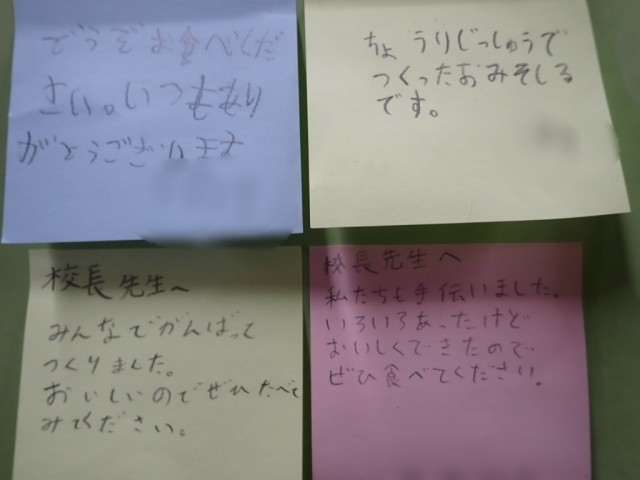 どうぞお食べくだ
さい。いつもあり
がとうございます
ちょうりじっしゅうで
つくったおみそしる
です。
校長先生へ
みんなでがんばって
つくりました。
おいしいのでぜひたべて
みてください。
校長先生へ
私たちも手伝いました。
いろいろあったけど
おいしくできたので
ぜひ食べてください。